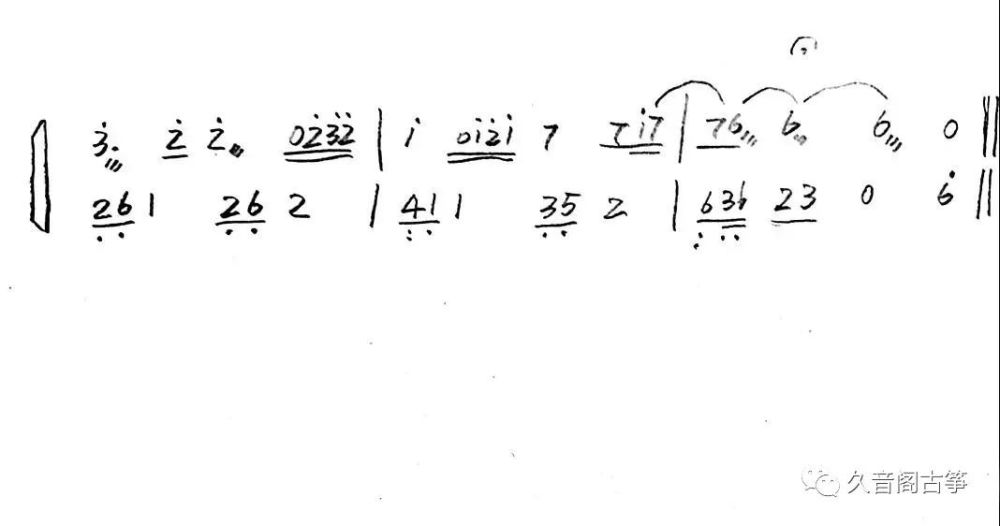 3. 2 2 0232 | 1 0121 7 717 | 76 6 6 0 ||
261 26 2 | 41 1 35 2 | 636 23 0 6 ||
久音阁古筝